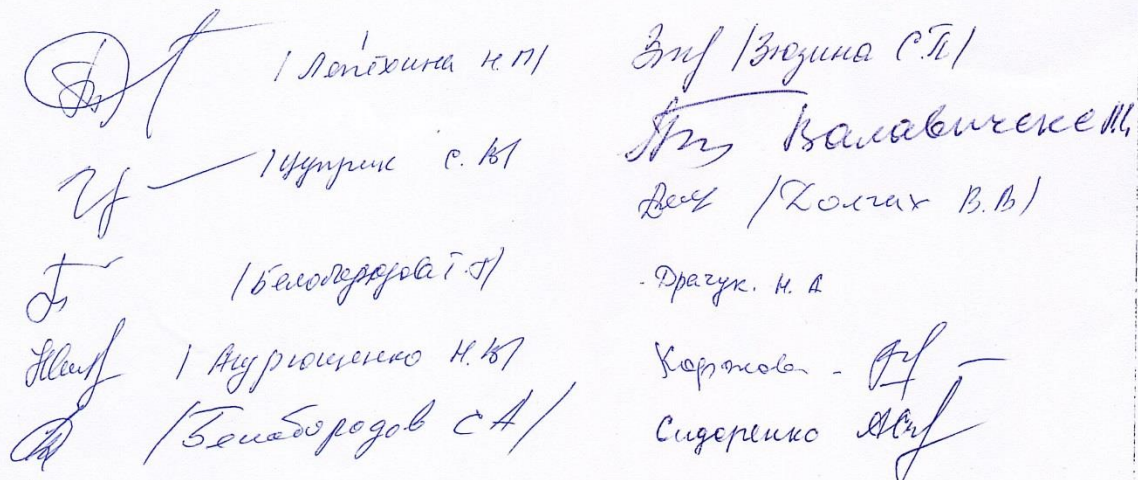 /Лепёхина Н.П/
/Цуприк С.В/
/Белобородова Т.П/
/Андрющенко Н.В/
/Белобородов С А/
/Зюзина С.П/
Валавичене М.
/Долгих В.В/
Драчук. Н. А
Сидоренко